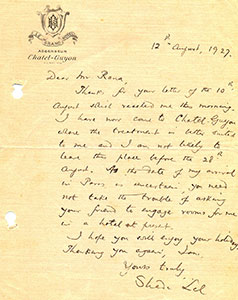 GRAND
Chatel-Guyon
12th August, 1927.
Dear Mr Rana,
Thanks for your letter of the 10th
August which reached me this morning.
I have now come to Chatel-Guyon
where the treatment is better suited
to me and I am not likely to
leave this place before the 28th
August. As the date of my arrival
in Paris is uncertain, you need
not take the trouble of asking
your friend to engage rooms for me
in a hotel at present.
I hope you will enjoy your holiday.
Thanking you again, I am
Yours truly,